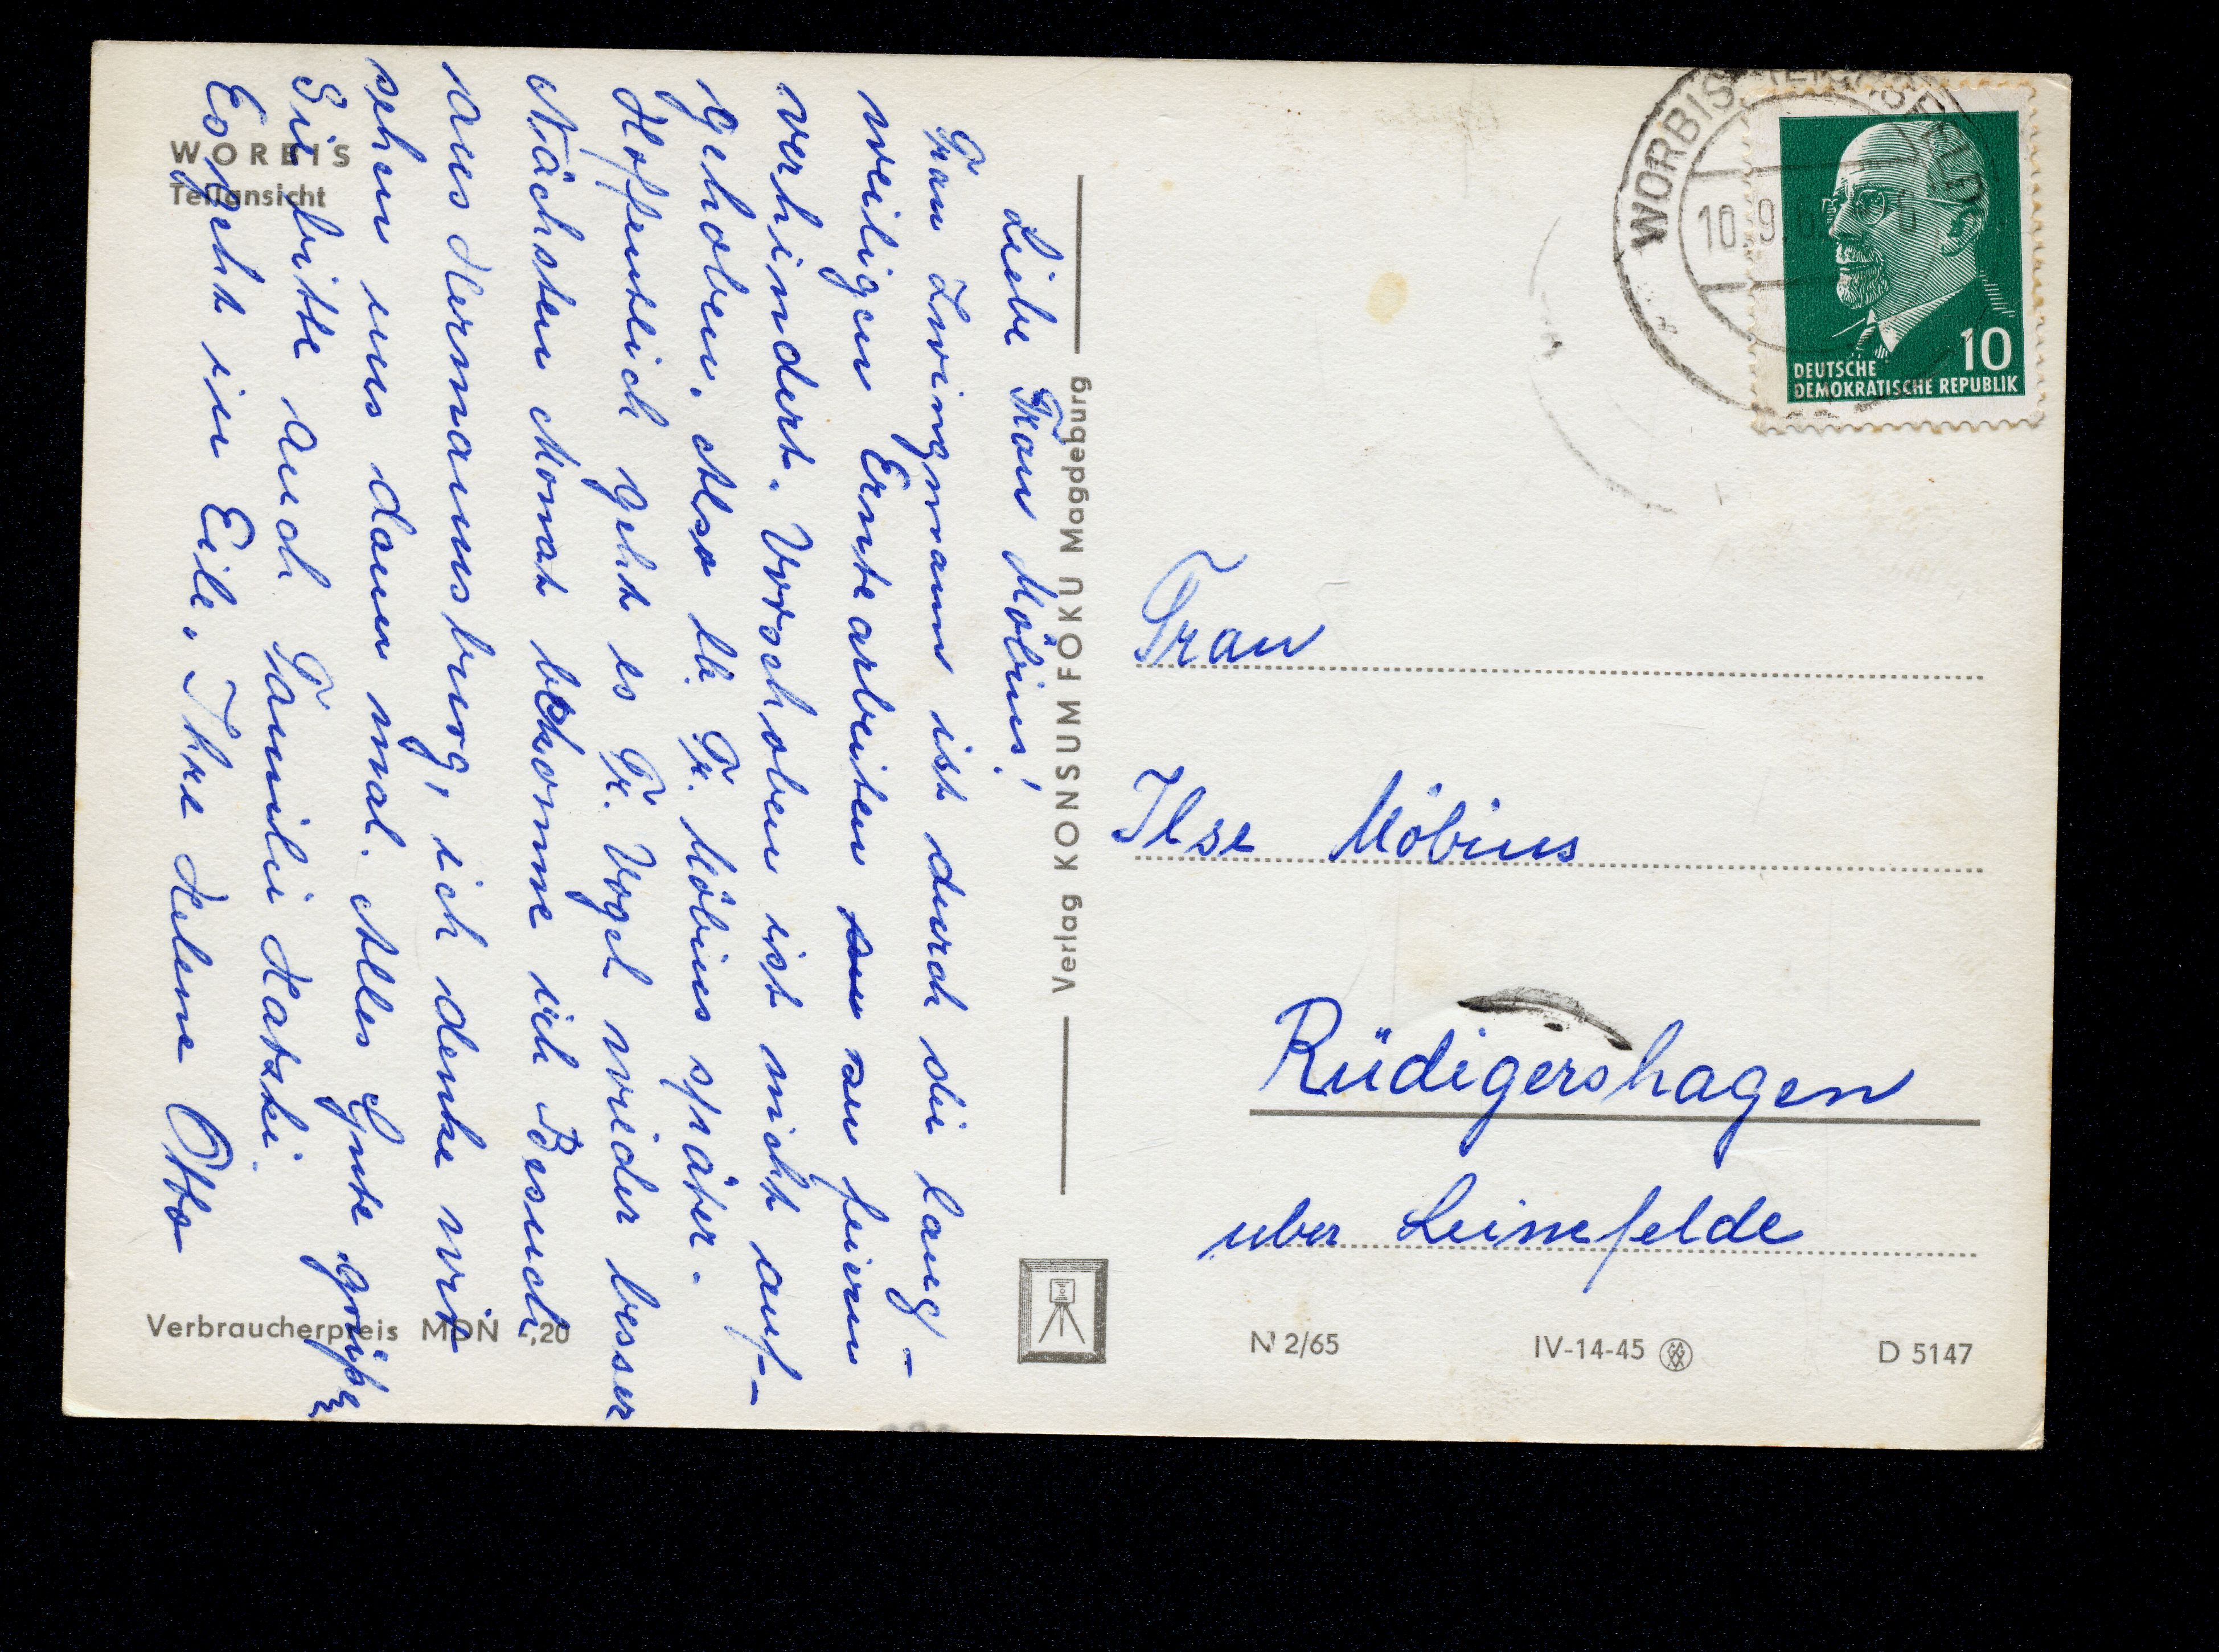 WORBIS
Teilansicht
Liebe Frau Möbius!
Frau Zwingmann ist durch die lang-
weiligen Erntearbeiten zu feiern
verhindert. Verschoben ist nicht auf-
gehoben. Also lb. Fr. Möbius später.
Hoffentlich geht es Fr. Vogel wieder besser
Nächsten Monat bekomme ich Besuch
aus Hermannsburg, ich denke wir
sehen uns dann mal. Alles Gute grüßen
Sie bitte auch Familie Hatski.
Es geht in Eile. Ihre Helene Otto
Verbraucherpreis MDN -,20
Verlag KONSUM FOKU Magdeburg
WORBIS EICHSFELD
10.9.6
10
DEUTSCHE
DEMOKRATISCHE REPUBLIK
Frau
Ilse Möbius
Rüdigershagen
über Leinefelde
N 2/65 IV-14-45 D 5147